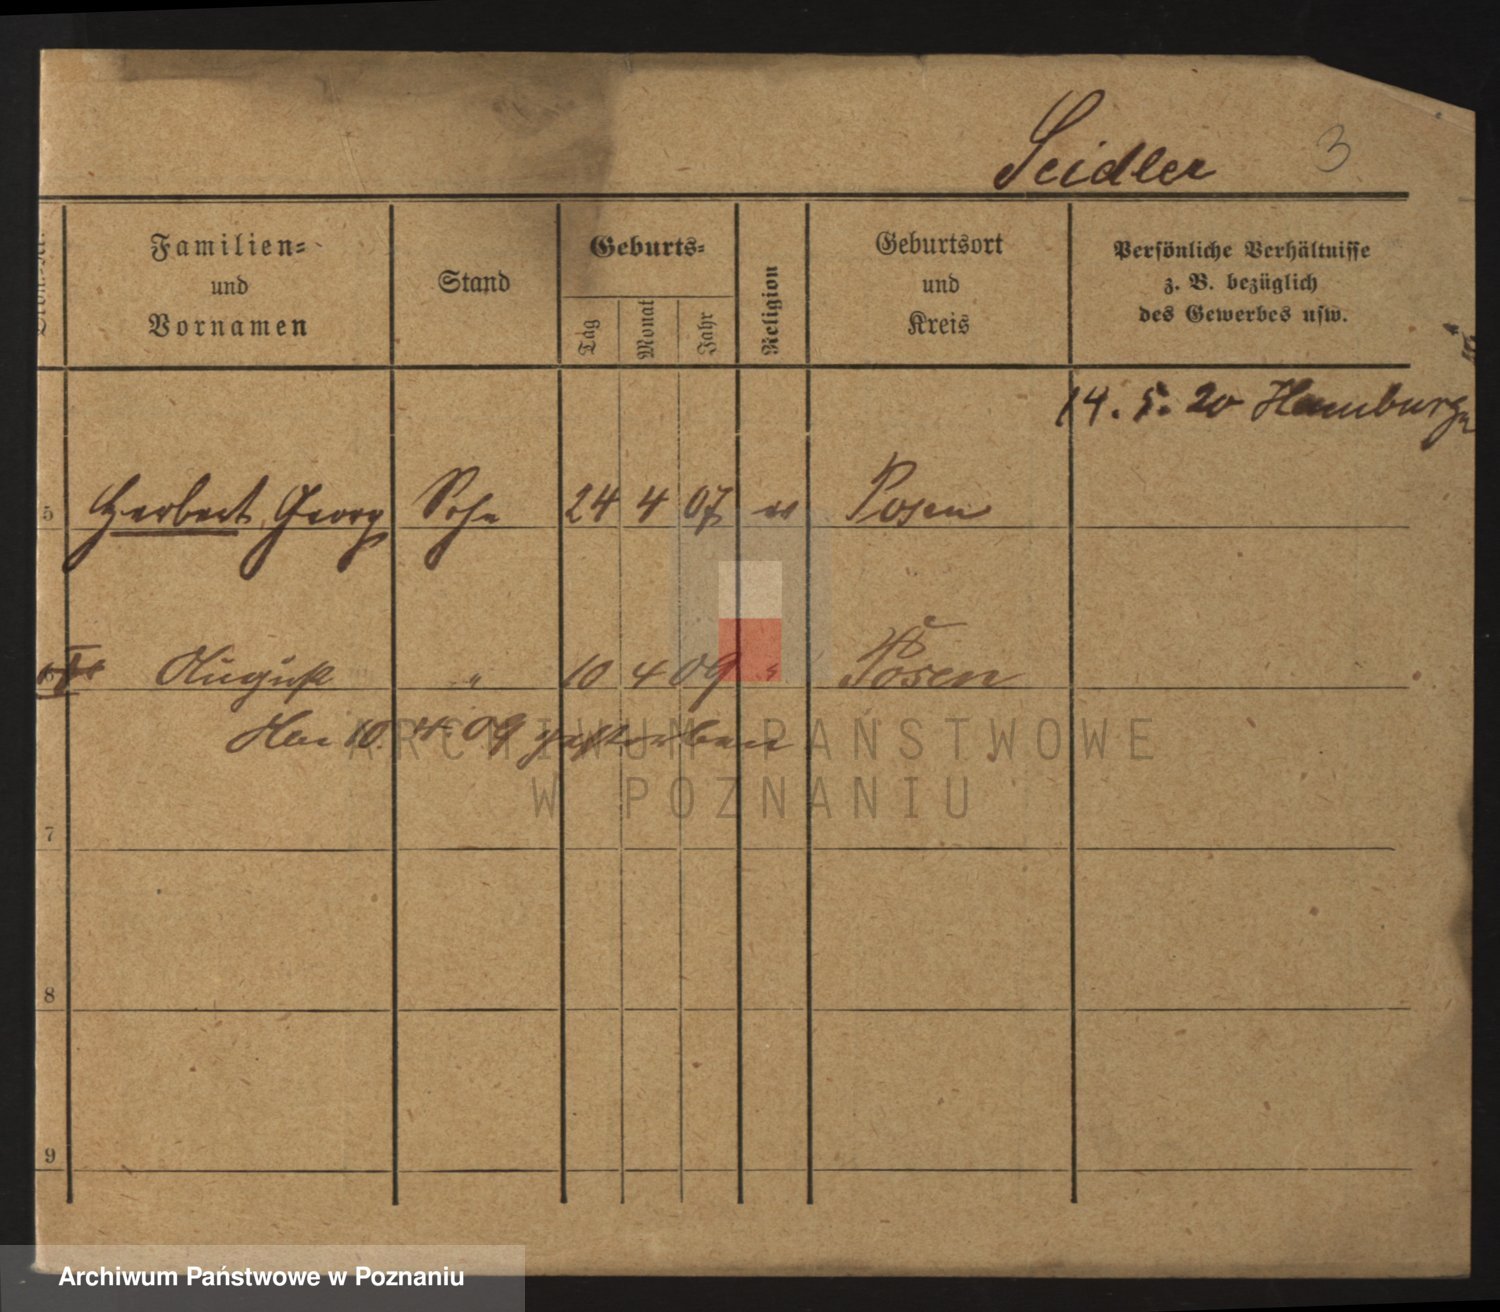 Seidler 3
Familien=
und
Vornamen
Stand
Geburts=
Tag
Monat
Jahr
Religion
Geburtsort
und
Kreis
Persönliche Verhältnisse
z. B. bezüglich
des Gewerbes usw.
14. 5. 20 Hamburg
5 Herbert Georg Sohn 24 4 07 ev Posen
August " 10 4 09 " Posen
10. 4. 09 gestorben
7
8
9
ARCHIWUM PAŃSTWOWE
W POZNANIU
Archiwum Państwowe w Poznaniu